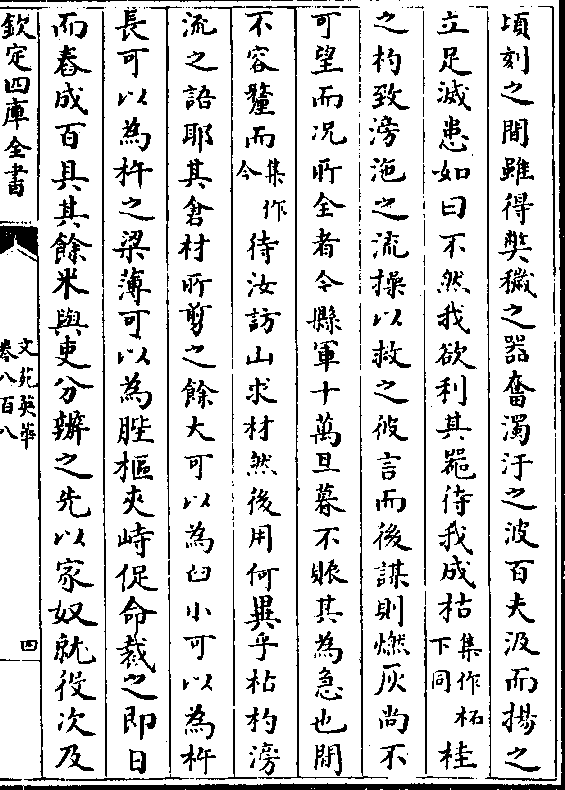 頃刻之間雖得奬穢之器奮濁汙之波百夫汲而揚之
立足滅患如曰不然我欲利其噐待我成枯集作柘下同桂
之杓致滂沲之流操以救之彼言而後謀則燃灰尚不
可望而况所全者令縣軍十萬旦暮不賑其為急也間
不容釐而集作今待汝訪山求材然後用何異乎枯杓滂
流之語耶其倉材所剪之餘大可以為臼小可以為杵
長可以為杵之梁薄可以為陛樞夾峙促命裁之即日
而舂成百具其餘米與吏分辦之先以家奴就役次及
欽定四庫全書
文苑英華
卷八百八
四